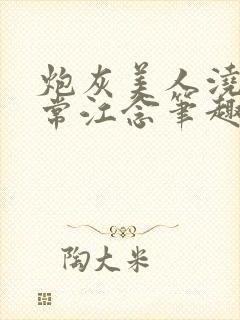 炮灰美人浇
常江念笔趣
陶大米